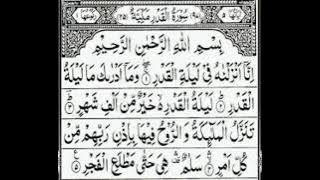 سُوْرَةُ الْقَدْرِ مَكِّيَّةٌ
بِسْمِ اللّٰهِ الرَّحْمٰنِ الرَّحِيْمِ
اِنَّاۤ اَنْزَلْنٰهُ فِيْ لَيْلَةِ الْقَدْرِ ۝١ وَمَاۤ اَدْرٰىكَ مَا لَيْلَةُ
الْقَدْرِ ۝٢ لَيْلَةُ الْقَدْرِ خَيْرٌ مِّنْ اَلْفِ شَهْرٍ ۝٣
تَنَزَّلُ الْمَلٰٓئِكَةُ وَ الرُّوْحُ فِيْهَا بِاِذْنِ رَبِّهِمْ مِّنْ
كُلِّ اَمْرٍ ۝٤ سَلٰمٌ هِيَ حَتّٰى مَطْلَعِ الْفَجْرِ ۝٥